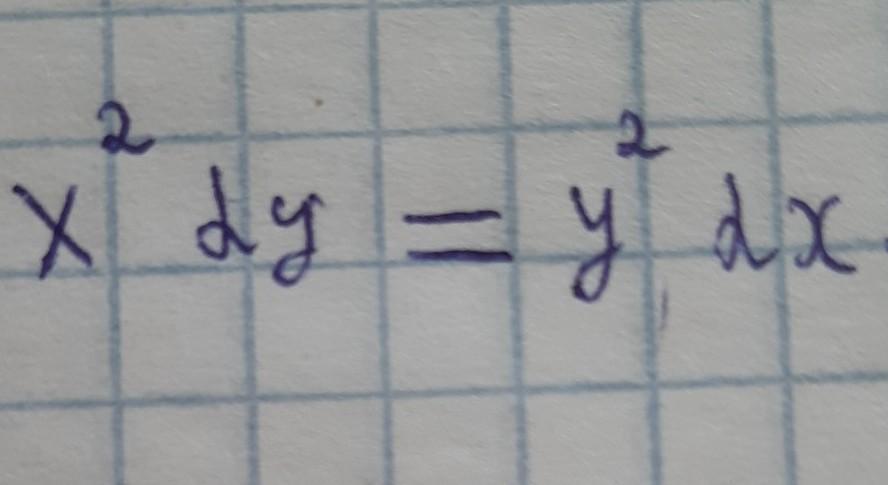 x² dy = y² dx.